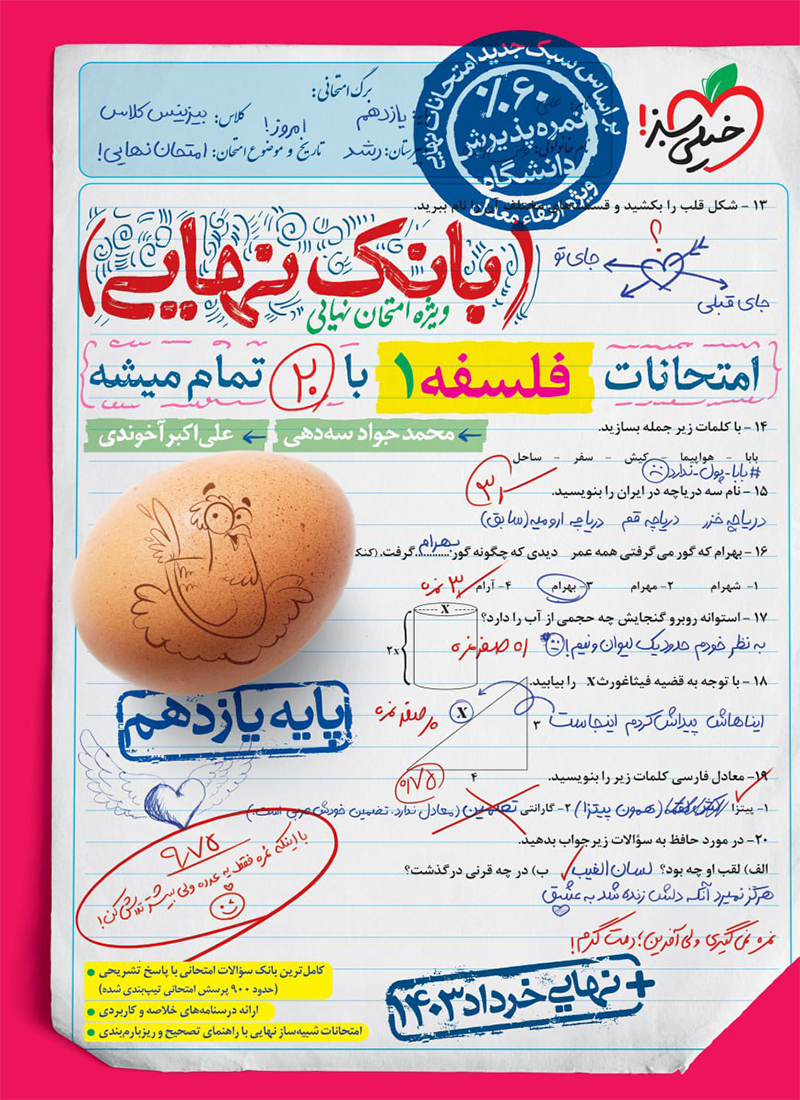 برگ امتحانی:
یازدهم
کلاس: بیزینس کلاس
رشد
تاریخ و موضوع امتحان: امروز! امتحان نهایی!
بر اساس سبک جدید امتحانات نهایی
۶۰٪
نمره پذیرش
دانشگاه
ویژه ارتقاء معدل
خیلی سبز!
۱۳- شکل قلب را بکشید و قسمت‌های مختلف آن را نام ببرید.
؟
جای تو
جای قبلی
(بانک نهایی)
ویژه امتحان نهایی
امتحانات فلسفه ۱ با ۲۰ تمام میشه
محمدجواد سه‌دهی
علی‌اکبر آخوندی
۱۴- با کلمات زیر جمله بسازید.
بابا - هواپیما - کیش - سفر - ساحل
#بابا-پول-ندارد
۱۵- نام سه دریاچه در ایران را بنویسید.
دریاچه خزر دریاچه قم دریاچه ارومیه (سابق)
۱۶- بهرام که گور می‌گرفتی همه عمر دیدی که چگونه گور بهرام گرفت. (کنک
۱- شهرام ۲- مهرام ۳- بهرام ۴- آرام
۳ نمره
۱۷- استوانه روبرو گنجایش چه حجمی از آب را دارد؟
X
۲x
به نظر خودم حدود یک لیوان و نیم!
۱۸- با توجه به قضیه فیثاغورث X را بیابید.
ایناهاش پیداش کردم اینجاست
X
۳
۴
پایه یازدهم
۱۹- معادل فارسی کلمات زیر را بنویسید.
۰/۷۵
۱- پیتزا (همون پیتزا) ۲- گارانتی تضمین (معادل ندارد. تضمین خودش عربی است.)
۲۰- در مورد حافظ به سؤالات زیر جواب بدهید.
الف) لقب او چه بود؟ لسان الغیب ب) در چه قرنی درگذشت؟
هرگز نمیرد آنکه دلش زنده شد به عشق
نمره نمی‌گیری ولی آفرین؛ دمت گرم!
۹/۷۵
با اینکه نمره فقط یه عدده ولی بیشتر تلاش کن!
کامل‌ترین بانک سؤالات امتحانی با پاسخ تشریحی
(حدود ۹۰۰ پرسش امتحانی تیپ‌بندی شده)
ارائه درسنامه‌های خلاصه و کاربردی
امتحانات شبیه‌ساز نهایی با راهنمای تصحیح و ریزبارم‌بندی
+ نهایی خرداد ۱۴۰۳